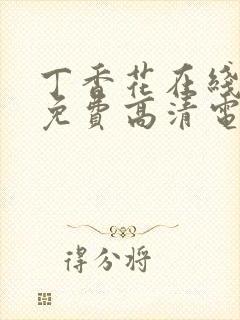 丁香花在线
免費高清電
得分将